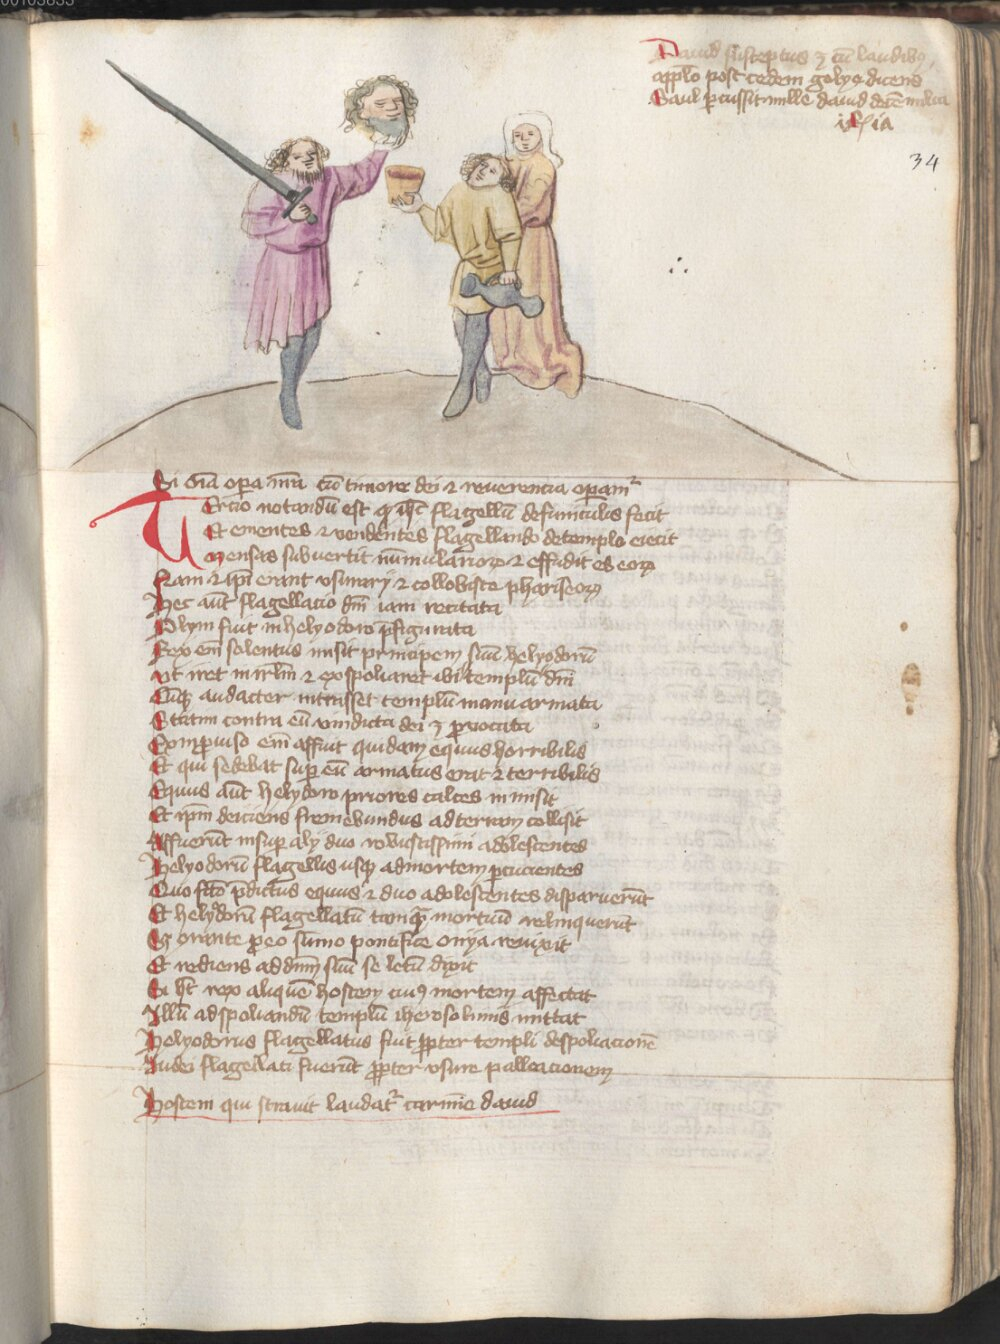 00103833
Dauid susceptus ē cū laudibꝰ
appl'o post cedem golye dicens
Saul ꝑcussit mille dauid decē milia
34
Si oīa oꝑa nr̄a cū timore dei ⁊ reuerencia opamr̉
Tercio notandū est ꝙ flagellū defuniculis fecit
Et ementes ⁊ vendentes flagellando detemplo eiecit
Mensas subuertit nūmularioꝝ ⁊ effudit es eoꝝ
Nam ⁊ ip̄i erant vsurarij ⁊ colloBiste phariseoꝝ
Hec aūt flagellacio dn̄i iam recitata
Olym fuit in helyodoro p̄figurata
Rex em̄ solentus misit principem suū helyodorū
Vt iret in irl̄m ⁊ exspoliaret ibi templū dn̄i
Cūqꝫ audacter intrasset templū manu armata
Statim contra eū vindicta dei ē ꝓuocata
Ex īprouiso em̄ affuit quidam equus horribilis
Et qui sedebat suꝑ eū armatus erat ⁊ terribilis
Equus aūt helydoro priores calces inmisit
Et ip̄m deiciens fremebundus ad terram collisit
Affuerūt insuꝑ alij duo robustissimi adolescentes
Helyodorū flagellis usqꝫ admortem ꝑcucientes
Quo fc̄o p̄dictus equus ⁊ duo adolescentes disparuerūt
Et helydorū flagellatū tamqꝫ mortuū relinquerūt
Sꝫ orante ꝓ eo sūmo pontifice onya reuixit
Et rediens ad dn̄m suū se letū dixit
Si hꝫ rex aliquē hostem cuiꝰ mortem affectat
Illū ad spoliandū templū iherosolimis mittat
Helyodorus flagellatus fuit ꝓpter templi despoliacionē
Iudei flagellati fuerūt ꝓpter vsure palleacionem
Hostem qui strauit laudatr̉ carmīe dauid